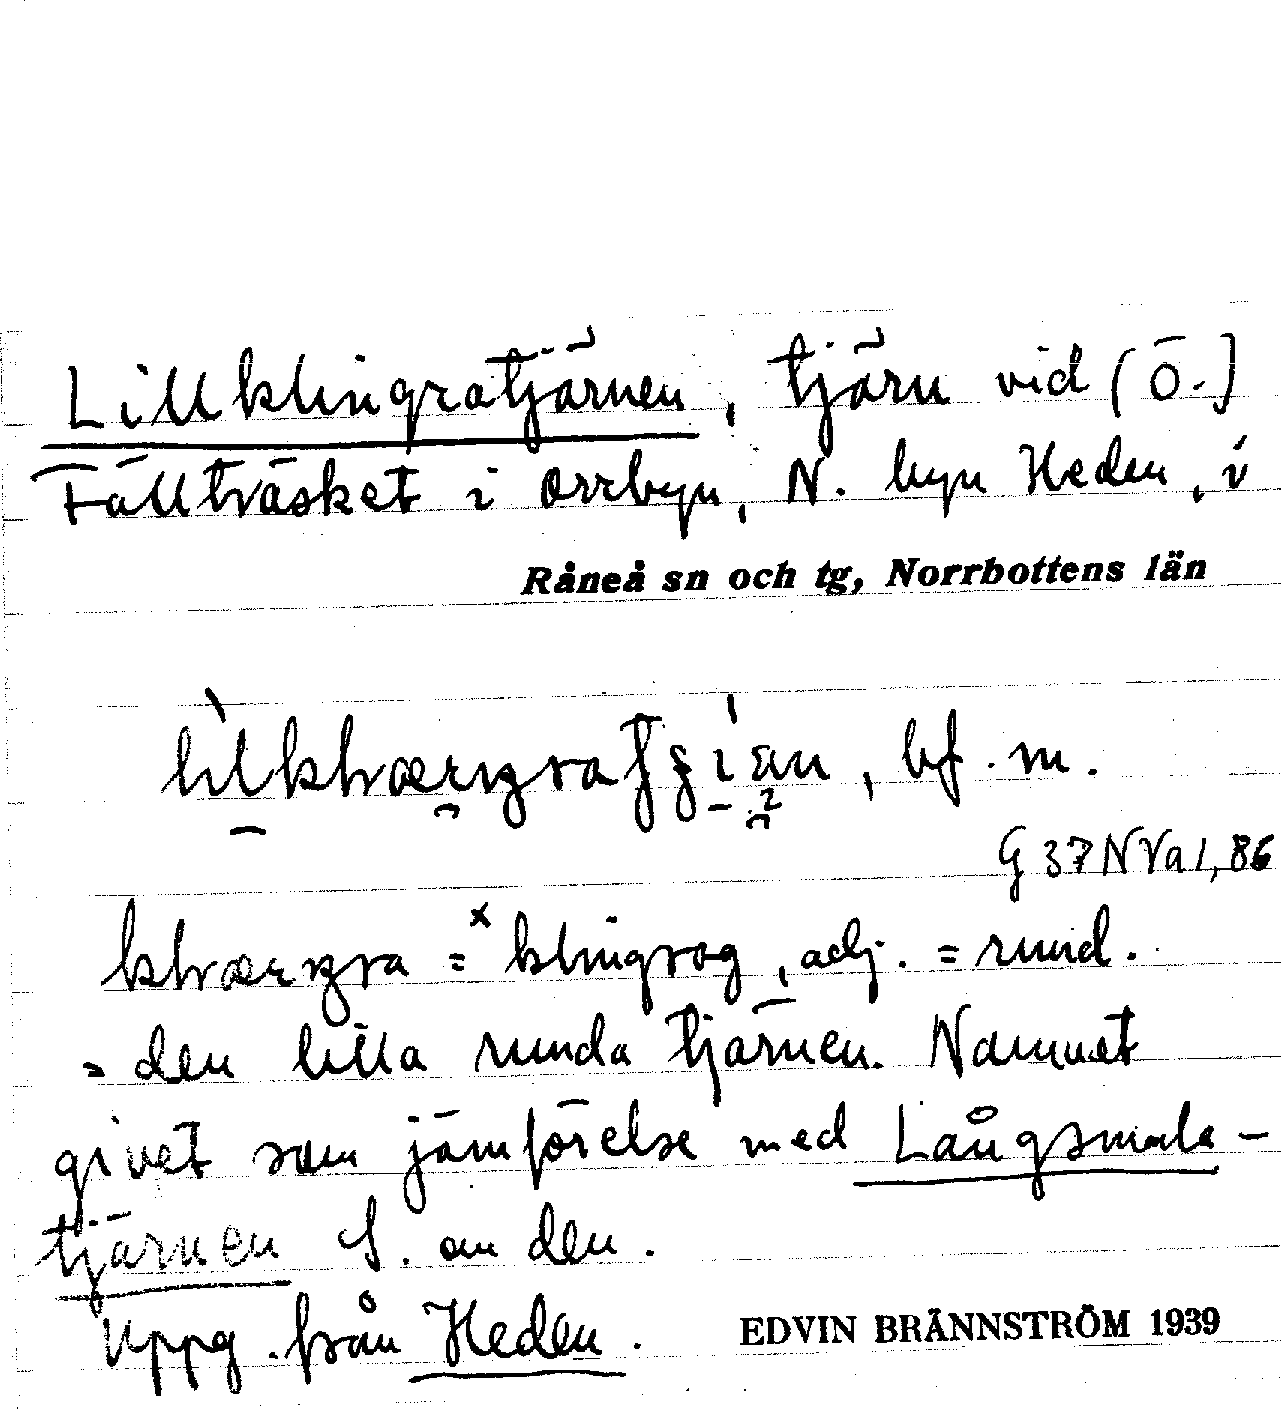 Lillklingratjärnen, tjärn vid (Ö.)
Fällträsket i Orrbyn, N. byn Heden, i
Råneå sn och tg, Norrbottens län
bf. m.
G 37 N Va 1, 86
= ˣklingrog, adj. = rund.
= den lilla runda tjärnen. Namnet
givet som jämförelse med Långsmala-
tjärnen S. om den.
Uppg. från Heden. EDVIN BRÄNNSTRÖM 1939